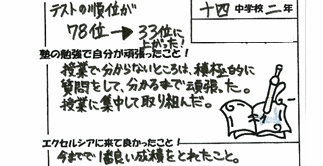 テストの順位が
78位→33位に
上がった!
十四中学校二年
塾の勉強で自分が頑張ったこと!
授業で分からないところは、積極的に
質問をして、分かるまで頑張った。
授業に集中して取り組んだ。
エクセルシアに来て良かったこと!
今までで1番良い成績をとれたこと。